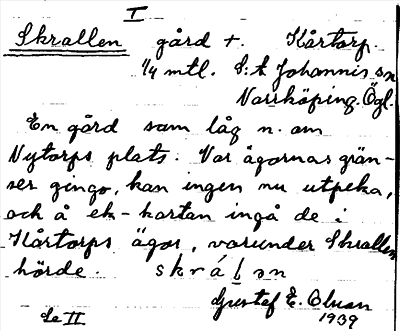 I
Skrallen gård t. Kårtorp
1/4 mtl. S:t Johannis sn
Norrköping. Ögl.
En gård som låg n. om
Nytorps plats. Var ägornas grän-
ser gingo, kan ingen nu utpeka,
och å ek-kartan ingå de i
Kårtorps ägor, varunder Skrallen
hörde. skrálən
Gustaf E. Olsson
Se II 1939